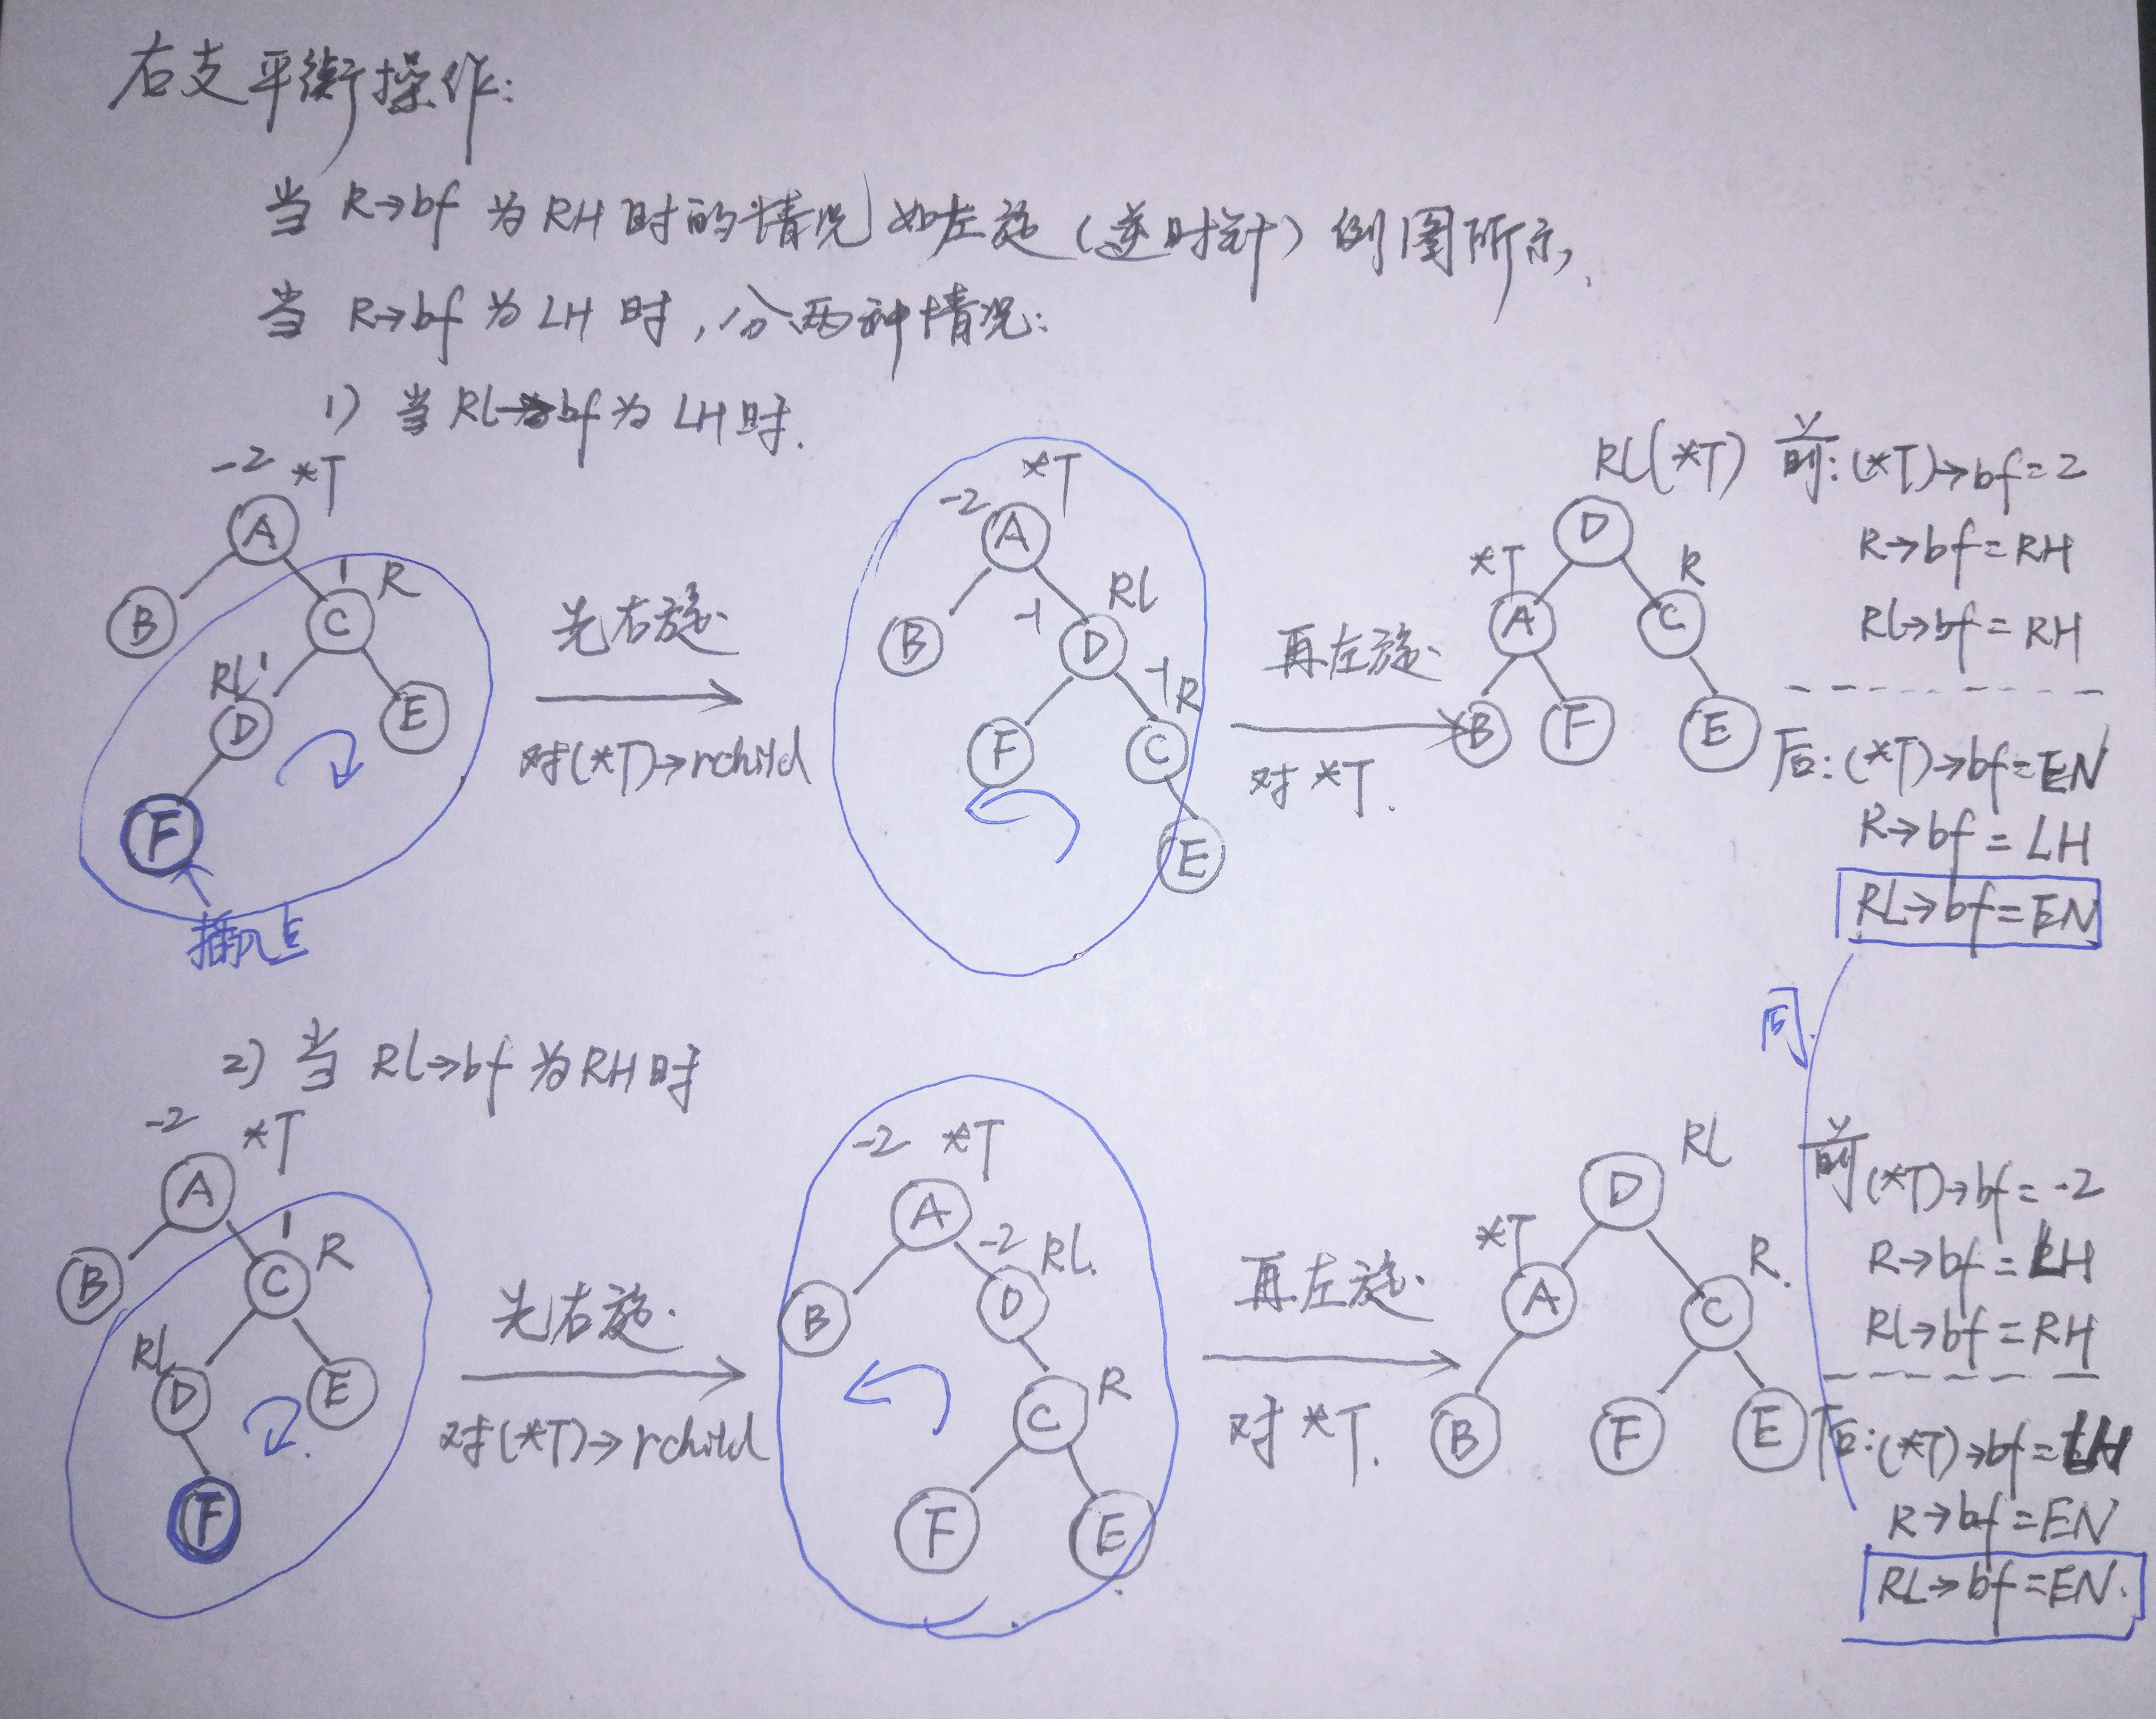 右支平衡操作:
当 R→bf 为 RH 时的情况如左旋(逆时针)例图所示,
当 R→bf 为 LH 时,分两种情况:
1) 当 Rl→bf 为 LH 时.
-2 *T
A
1 R
B
C
Rl 1
D
E
F
插入点
先右旋.
对(*T)→rchild
*T
-2
A
Rl
B
-1
D
-1 R
F
C
E
再左旋.
对 *T.
RL(*T)
D
*T
R
A
C
B
F
E
前: (*T)→bf=2
R→bf=RH
Rl→bf=RH
后: (*T)→bf=EN
R→bf=LH
RL→bf=EN
同.
2) 当 Rl→bf 为 RH 时
-2 *T
A
1 R
B
C
Rl
D
E
F
先右旋.
对(*T)→rchild
-2 *T
A
-2 Rl.
B
D
R
C
F
E
再左旋.
对 *T.
Rl
D
*T
R.
A
C
B
F
E
前 (*T)→bf=-2
R→bf=LH
Rl→bf=RH
后: (*T)→bf=LH
R→bf=EN
RL→bf=EN.